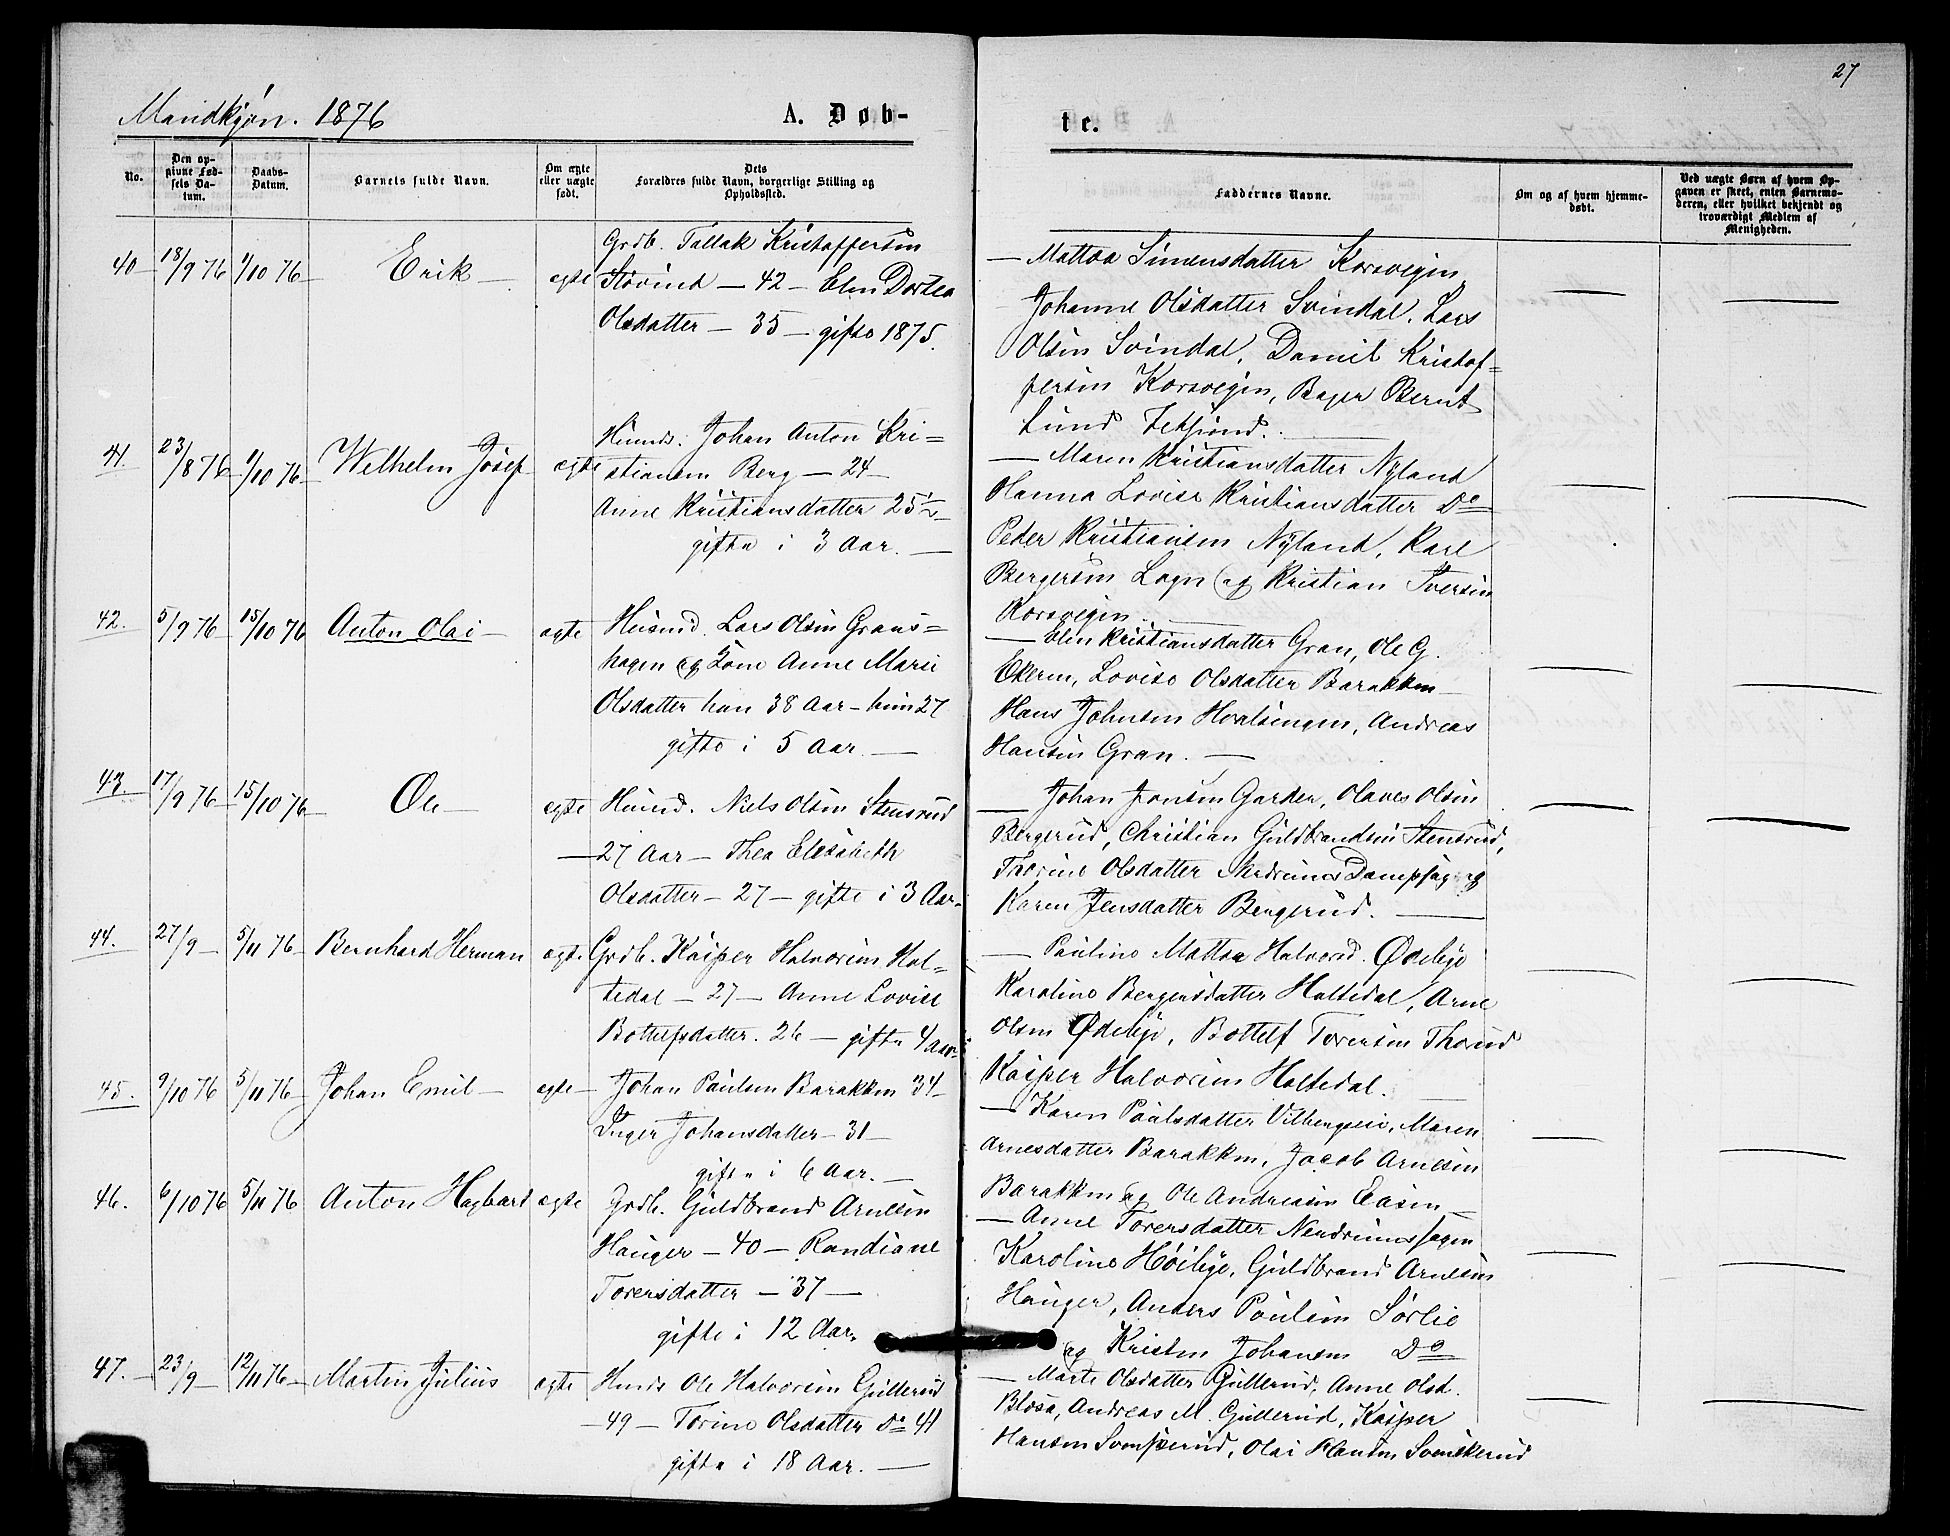 27
Mandkjøn. 1876
A. Døb-
te.
No.
Den op-
givne Fød-
sels Da-
tum.
Daabs-
Datum.
Barnets fulde Navn.
Om ægte
eller uægte
født.
Dets
Forældres fulde Navn, borgerlige Stilling og
Opholdssted.
Faddernes Navne.
Om og af hvem hjemme-
døbt.
Ved uægte Børn af hvem Op-
gaven er skeet, enten Barnemo-
deren, eller hvilket bekjendt og
troværdigt Medlem af
Menigheden.
40 — 18/9 76 1/10 76 — Erik — egte
Grdb. Tallak Kristoffersen
Støvind — 42 — Elen Dortea
Olsdatter — 35 — gifte 1875.
— Mattea Simensdatter Korsvegen
Johanne Olsdatter Svindal, Lars
Olsen Svindal, Daniel Kristof=
fersen Korsvegen, Bager Bernt
Lund
41. 23/8 76 1/10 76 — Wilhelm Josef egte
Huusm. Johan Anton Kri=
stiansen Berg — 24 —
Anne Kristiansdatter 25½ —
gifte i 3 Aar. —
— Maren Kristiansdatter Nyland
Hanna Lovise Kristiansdatter Do
Peder Kristiansen Nyland, Karl
Bergersen Logn og Kristian Iversen
Korsvegen. —
42. 5/9 76 15/10 76 Anton Olai — egte
Husmd. Lars Olsen Grans=
hagen og Kone Anne Marie
Olsdatter han 38 Aar — hun 27
gifte i 5 Aar. —
— Elen Kristiansdatter Gran, Ole G.
Ekeren, Lovise Olsdatter Barakken
Hans Johnsen Hvalsengen, Andreas
Hansen Gran. —
43. 17/9 76 15/10 76 Ole — egte
Husmd. Niels Olsen Stensrud
— 27 Aar — Thea Elisabeth
Olsdatter — 27 — gifte i 3 Aar.
— Johan Jonsen Garder, Olaves Olsen
Bergerud, Christian Guldbrandsen Stensrud,
Thorine Olsdatter Nerdrums Dampsag og
Karen Jensdatter Bergerud. —
44. 27/9 — 5/11 76 — Bernhard Herman egte
Grdb. Kasper Halvorsen Hol=
tedal — 27 — Anne Lovise
Bottelfsdatter. 26 — gifte 4 Aar.
— Pauline Mattea Halvorsd. Ødeby
Karoline Bergersdatter Holtedal, Arne
Olsen Ødeby, Bottelf Toversen Thorud
Kasper Halvorsen Holtedal.
45. 9/10 76 5/11 76 — Johan Emil — egte —
Johan Paulsen Barakken 34 —
Inger Johansdatter — 31 —
gifte i 6 Aar. —
— Karen Paulsdatter Vilbergseie, Maren
Arnesdatter Barakken, Jacob Arnesen
Barakken og Ole Andreasen Easen —
46. 6/10 76 5/11 76 Anton Hagbart egte
Grdb. Guldbrand Arnesen
Hauger — 40 — Randiane
Toversdatter — 37 —
gifte i 12 Aar.
— Anne Toversdatter Nerdrumssagen
Karoline Høiby, Guldbrand Arnesen
Hauger, Anders Paulsen Sørlie
og Kristen Johansen Do
47. — 23/9 — 12/11 76 — Martin Julius egte
Husmd Ole Halvorsen Gullerud
— 49 — Torine Olsdatter Do 41
gifte i 18 Aar. —
— Marte Olsdatter Gullerud, Anne Olsd.
Blæsa, Andreas M. Gullerud, Kasper
Hansen Svenskerud, Olai Hansen Svenskerud